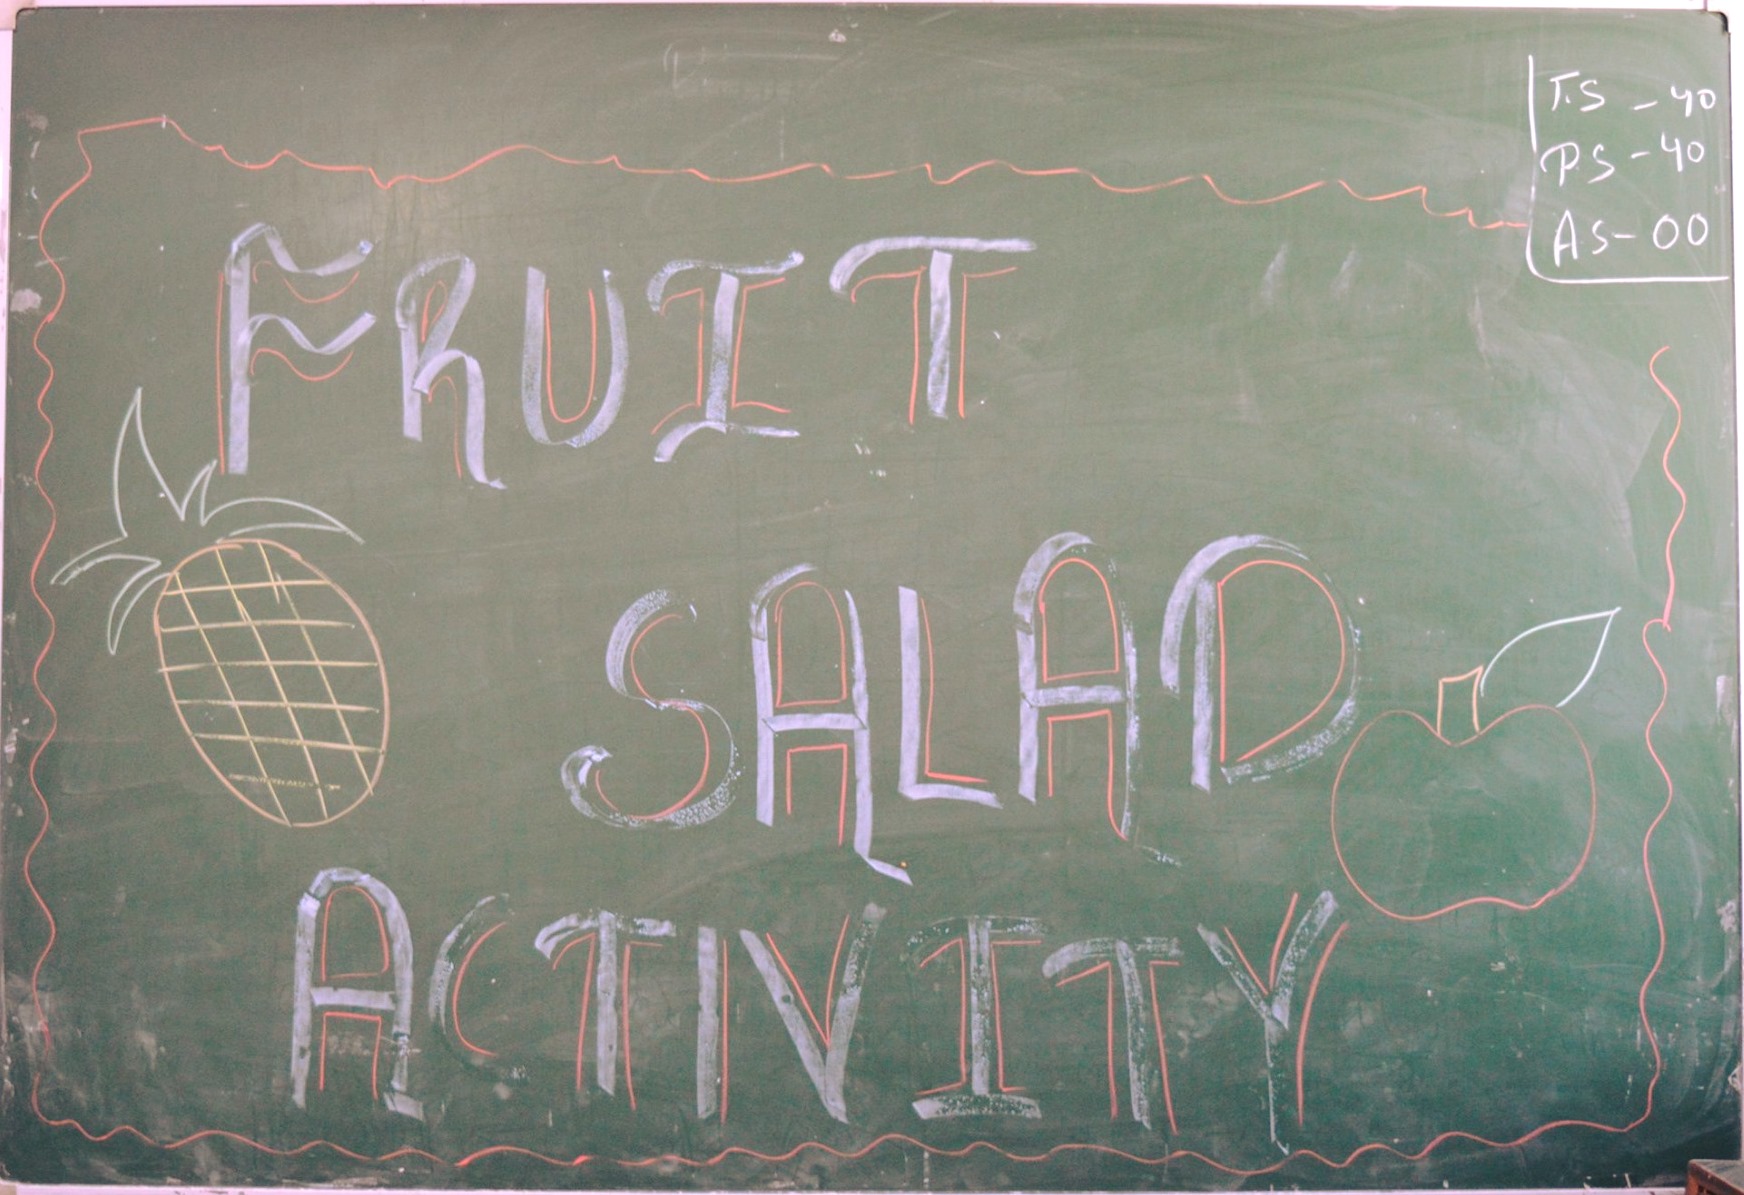 T.S - 40
P.S - 40
A.S - 00
FRUIT
SALAD
ACTIVITY